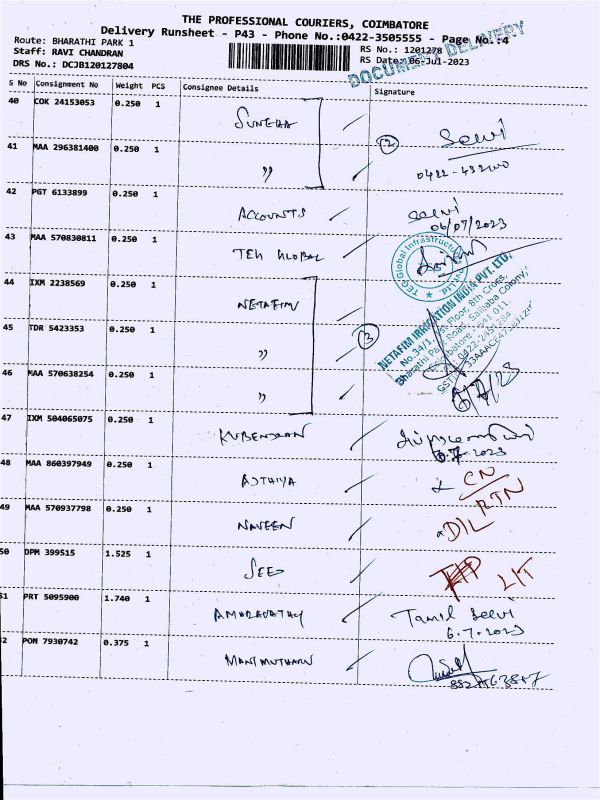 THE PROFESSIONAL COURIERS, COIMBATORE
Delivery Runsheet - P43 - Phone No.:0422-3505555 - Page No.:4
Route: BHARATHI PARK 1
RS No.: 1201278
Staff: RAVI CHANDRAN
RS Date: 06-Jul-2023
DRS No.: DCJB120127804
DOCUMENT DELIVERY
S No Consignment No Weight PCS Consignee Details Signature
40 COK 24153053 0.250 1 SUNEHA Selvi
41 MAA 296381400 0.250 1 〃 (2)
42 PGT 6133899 0.250 1 ACCOUNTS Selvi
06/07/2023
43 MAA 570830811 0.250 1 TEH GLOBAL
TEQ Global Infrastructure
44 IXM 2238569 0.250 1 NETAFIM
NETAFIM IRRIGATION INDIA PVT. LTD,
45 TDR 5423353 0.250 1 〃 (3)
46 MAA 570638254 0.250 1 〃 6/7/23
47 IXM 504065075 0.250 1 KUBENDRAN
6.7.2023
48 MAA 860397949 0.250 1 AJTHIYA CN
RTN
49 MAA 570937798 0.250 1 NAVEEN DIL
50 DPM 399515 1.525 1 SEED L/T
51 PRT 5095900 1.740 1 AMARAVATHY Tamil Selvi
6.7.2023
52 PON 7930742 0.375 1 MANIMUTHARU